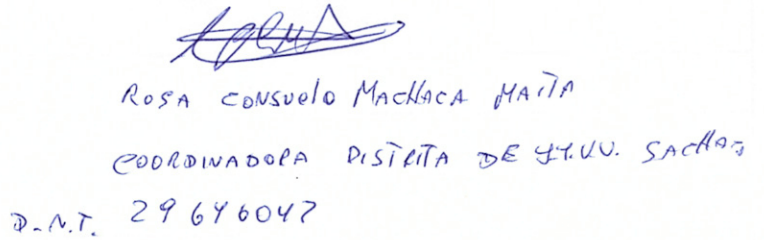 ROSA CONSUElO MACHACA MAITA
COORDINADORA DISTRITA DE JJ.VV. SACHA
D.N.I. 29646047